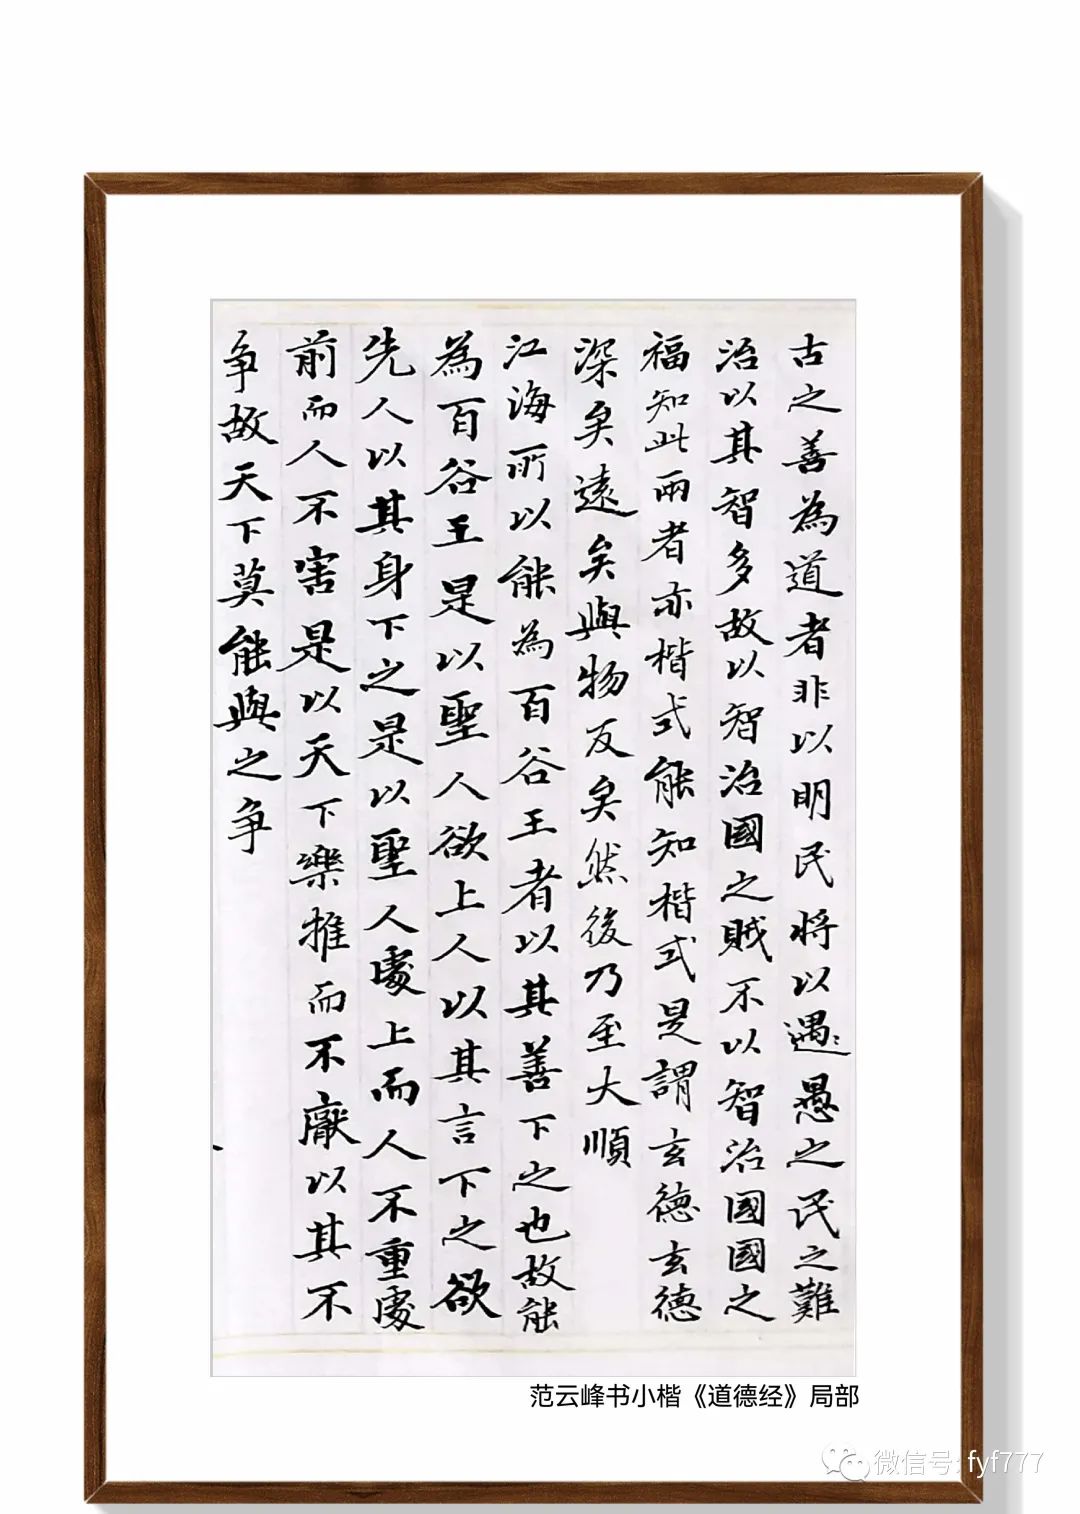 古之善為道者非以明民将以遇愚之民之難
治以其智多故以智治國之賊不以智治國國之
福知此兩者亦楷式能知楷式是謂玄德玄德
深矣遠矣與物反矣然後乃至大順
江海所以能為百谷王者以其善下之也故能
為百谷王是以聖人欲上人以其言下之欲
先人以其身下之是以聖人處上而人不重處
前而人不害是以天下樂推而不厭以其不
争故天下莫能與之争
范云峰书小楷《道德经》局部
微信号: fyf777